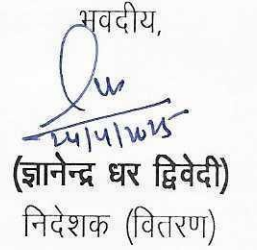 भवदीय,
24/4/2025
(ज्ञानेन्द्र धर द्विवेदी)
निदेशक (वितरण)